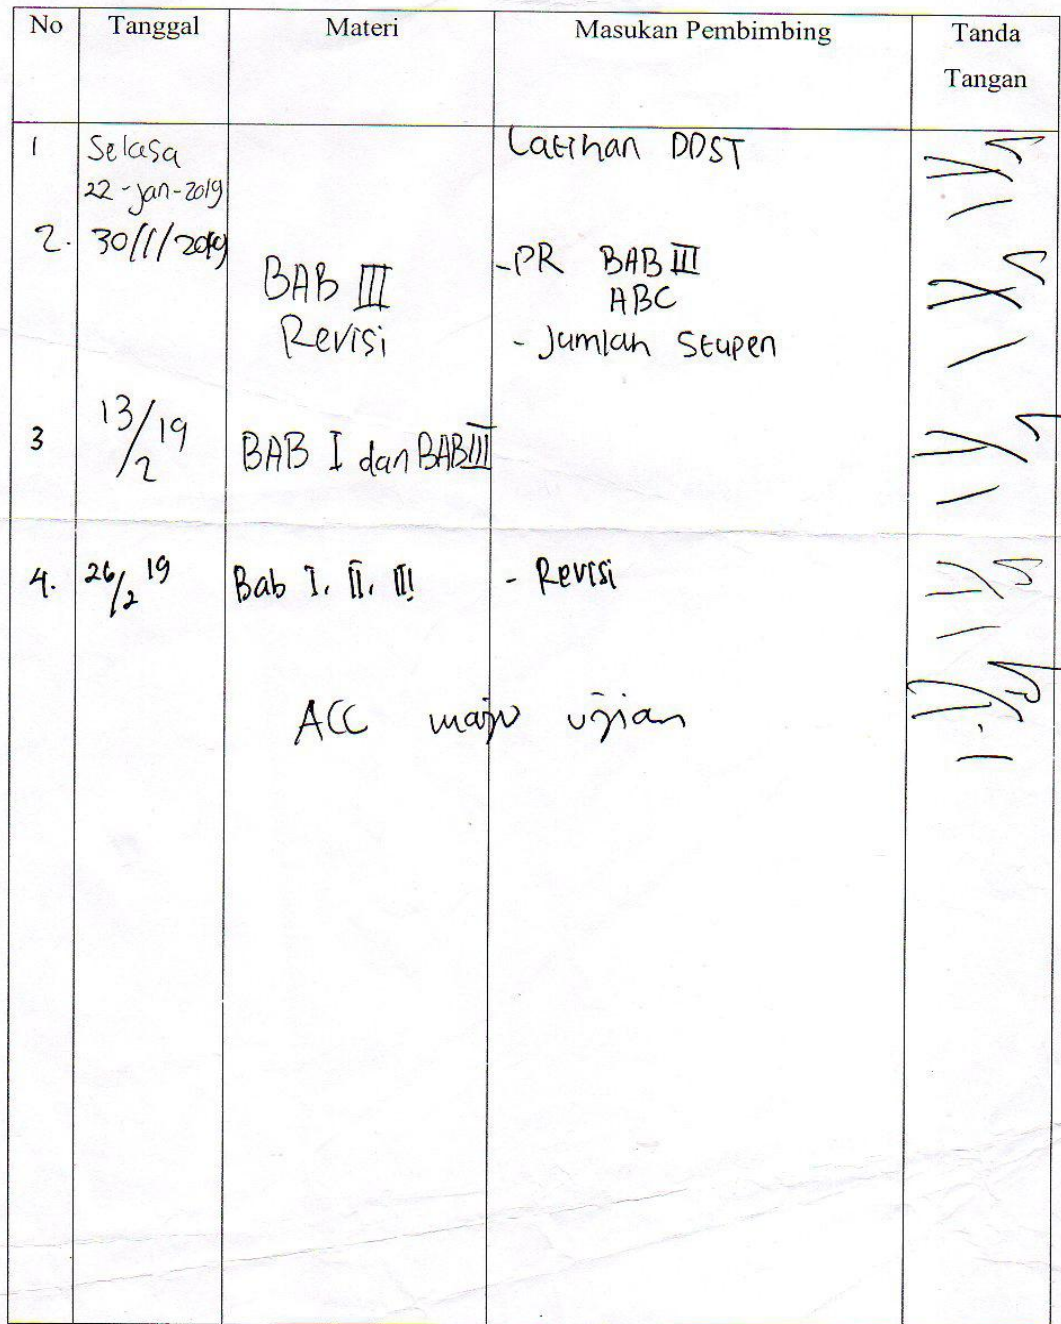 No Tanggal Materi Masukan Pembimbing Tanda
Tangan
1 Selasa Latihan DDST
22-jan-2019
2. 30/1/2019 -PR BAB III
BAB III ABC
Revisi - Jumlah Stupen
3 13/2 19 BAB I dan BAB III
4. 26/2 19 Bab I, II, III - Revisi
ACC maju ujian